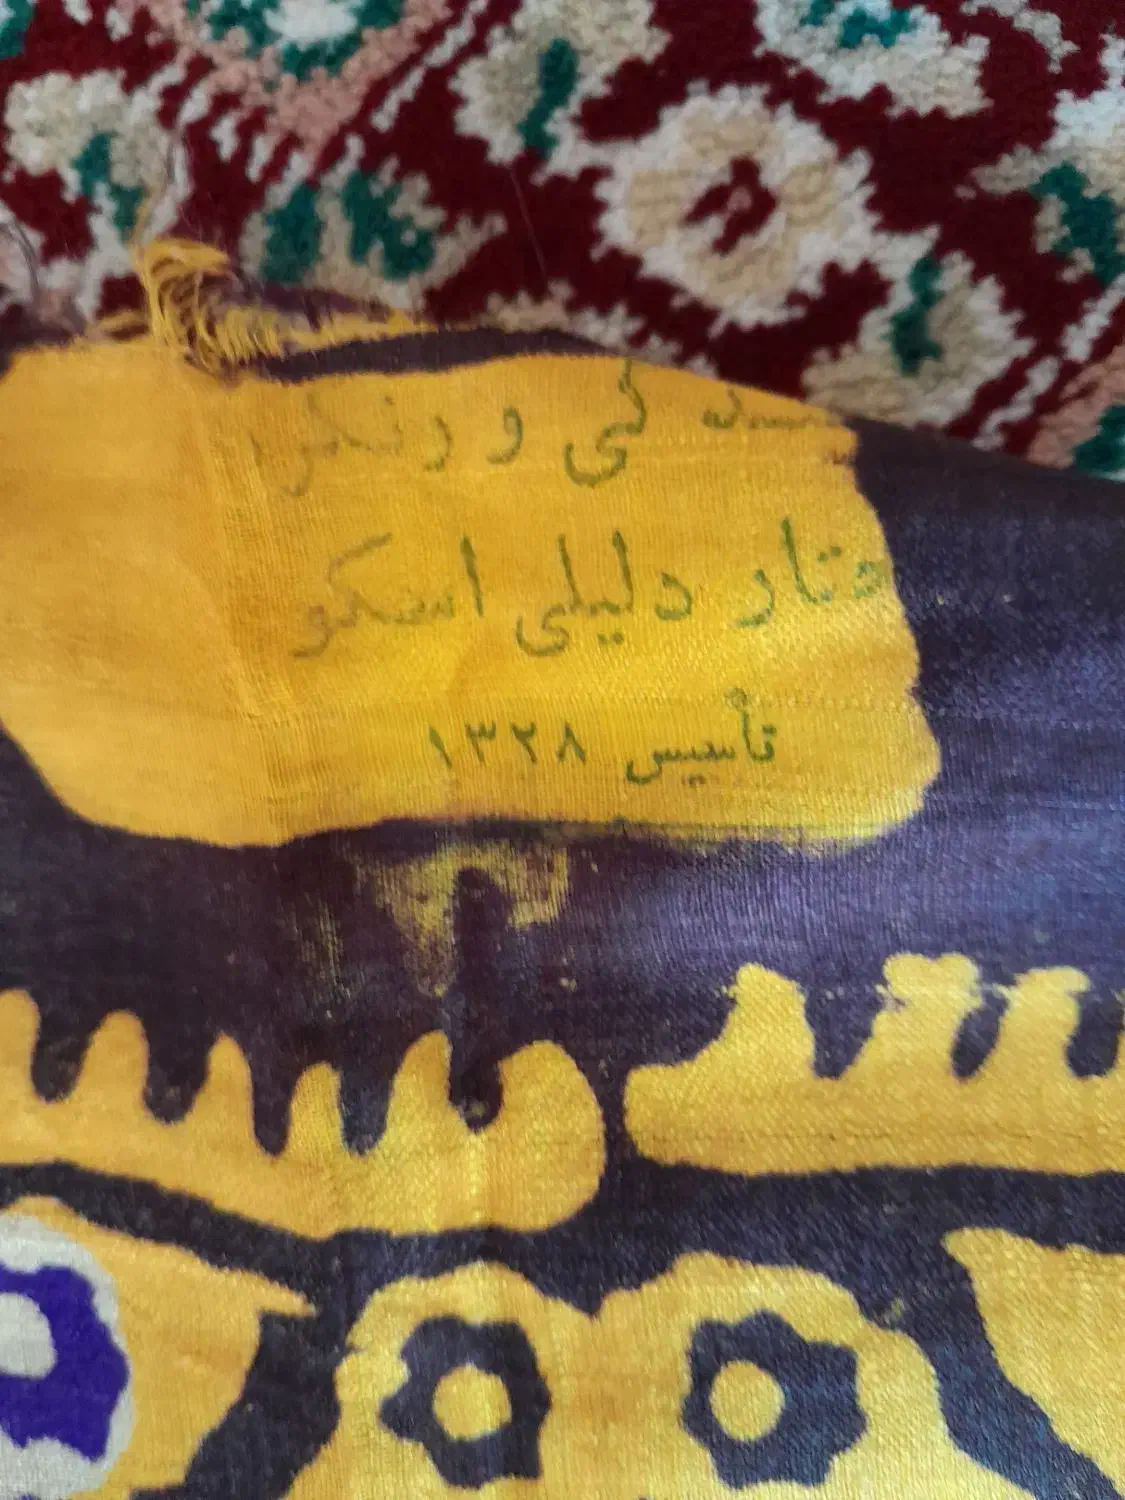 کی و رنگرزی
ستار دلیلی اسکو
تأسیس ۱۳۲۸